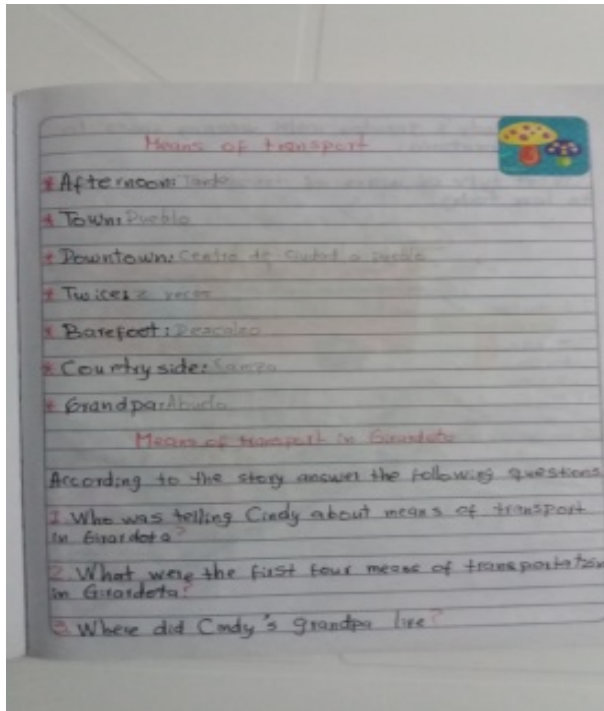 Means of transport
* Afternoon: Tarde
* Town: Pueblo
* Downtown: Centro de ciudad o pueblo
* Twice: 2 veces
* Barefoot: Descalzo
* Country side:
* Grandpa: Abuelo
Means of transport in Girardota
According to the story answer the following questions
1. Who was telling Cindy about means of transport
in Girardota?
2. What were the first four means of transportation
in Girardota?
3. Where did Cindy's grandpa live?